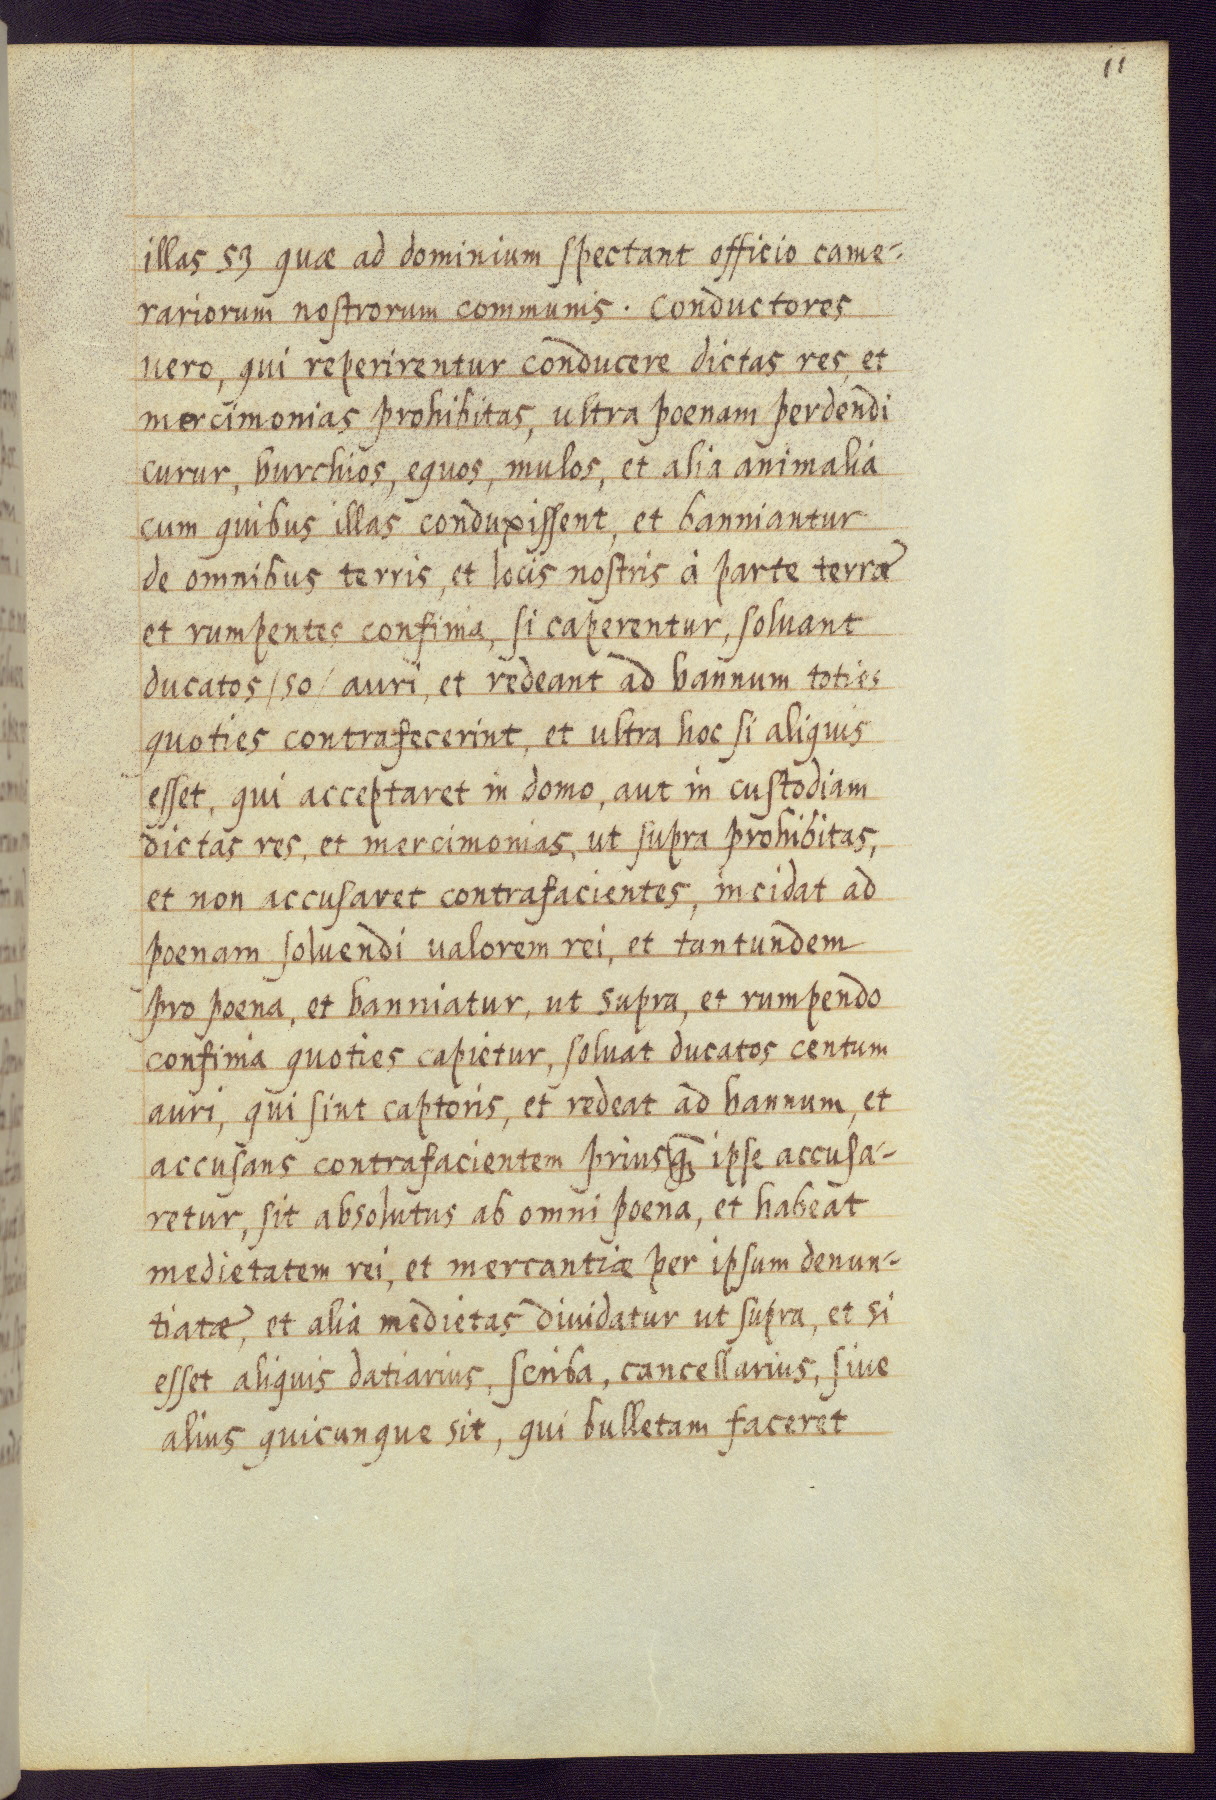 11
illas 53 quæ ad dominium spectant officio came-
rariorum nostrorum communis. Conductores
uero, qui reperirentur conducere dictas res, et
mercimonias prohibitas, ultra poenam perdendi
curur, burchios, equos, mulos, et alia animalia
cum quibus illas conduxissent, et banniantur
de omnibus terris, et locis nostris à parte terræ
et rumpentes confinia, si caperentur, soluant
ducatos /50/ auri, et redeant ad bannum toties
quoties contrafecerint, et ultra hoc si aliquis
esset, qui acceptaret in domo, aut in custodiam
dictas res, et mercimonias, ut supra prohibitas,
et non accusaret contrafacientes, incidat ad
poenam soluendi ualorem rei, et tantundem
pro poena, et banniatur, ut supra, et rumpendo
confinia quoties capietur, soluat ducatos centum
auri, qui sint captoris, et redeat ad bannum, et
accusans contrafacientem priusq̃ ipse accusa-
retur, sit absolutus ab omni poena, et habeat
medietatem rei, et mercantiæ per ipsum denun-
tiatæ, et alia medietas diuidatur ut supra, et si
esset aliquis datiarius, scriba, cancellarius, siue
alius quicunque sit, qui bulletam faceret